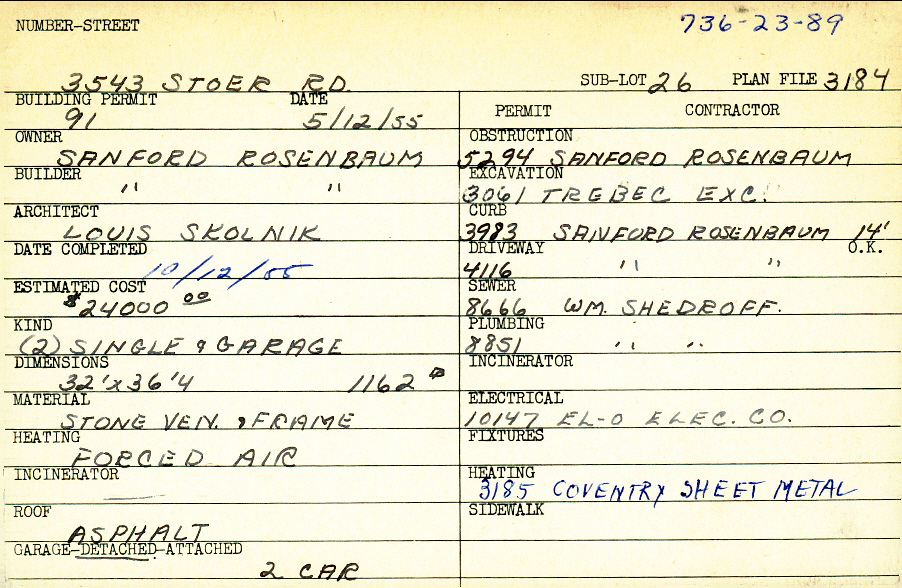 NUMBER-STREET 736-23-89
3543 STOER RD. SUB-LOT 26 PLAN FILE 3184
BUILDING PERMIT DATE
91 5/12/55
OWNER
SANFORD ROSENBAUM
BUILDER
" "
ARCHITECT
LOUIS SKOLNIK
DATE COMPLETED
10/12/55
ESTIMATED COST
$24000 00
KIND
(2) SINGLE & GARAGE
DIMENSIONS
32'x36'4 1162
MATERIAL
STONE VEN. & FRAME
HEATING
FORCED AIR
INCINERATOR
ROOF
ASPHALT
GARAGE-DETACHED-ATTACHED
2 CAR
PERMIT CONTRACTOR
OBSTRUCTION
5294 SANFORD ROSENBAUM
EXCAVATION
3061 TREBEC EXC.
CURB
3983 SANFORD ROSENBAUM 14'
DRIVEWAY O.K.
4116 " "
SEWER
8666 WM. SHEDROFF.
PLUMBING
8851 " "
INCINERATOR
ELECTRICAL
10147 EL-O ELEC. CO.
FIXTURES
HEATING
3185 COVENTRY SHEET METAL
SIDEWALK